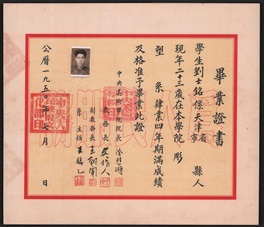 畢業證書
學生劉士銘係天津市縣人
現年二十三歲在本學院彫
塑系肄業四年期滿成績
及格准予畢業此證
中央美術學院院長徐悲鴻
教務長
副教務長王朝聞
系主任王臨乙
公曆一九五〇年七月日